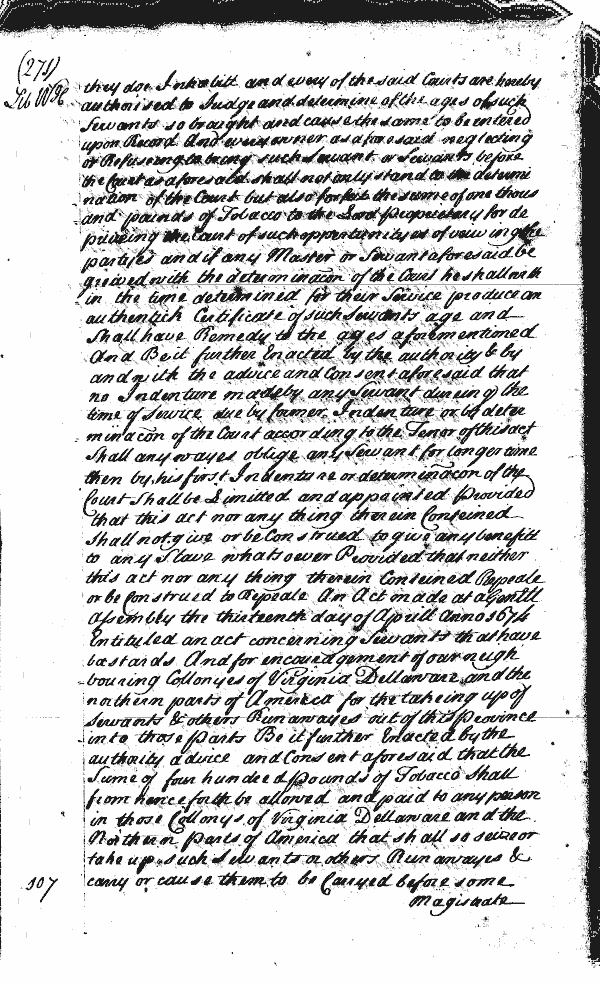 (271)
they doe Inhabitt and every of the said Courts are hereby
authorised to Judge and determine of the ages of such
Servants so brought and cause the same to be entered
upon Record And every owner as aforesaid neglecting
or Refuseing to bring such Servant or Servants before
the Court as aforesaid shall not only stand to the determi
nation of the Court but also forfeit the sume of one thous
and pounds of Tobacco to the Lord Proprietary for de
priveing the Court of such opportunityes of viewing the
partyes and if any Master or Servant aforesaid be
greived with the determinacon of the Court he shall with
in the time determined for their Service produce an
authentick Certificate of such Servants age and
Shall have Remedy to the ages aforementioned
And Be it further Enacted by the authority & by
and with the advice and Consent aforesaid that
no Indenture made by any Servant dureing the
time of Service due by former Indenture or by deter
minacon of the Court according to the Tenor of this act
shall any wayes oblige any Servant for longer time
then by his first Indenture or determinacon of the
Court shall be Limitted and appointed Provided
that this act nor any thing therein Conteined
shall not give or be Construed to give any benefitt
to any Slave whatsoever Provided that neither
this act nor any thing therein Conteined Repeale
or be Construed to Repeale An Act made at a Genll
Assembly the thirteenth day of Aprill Anno 1674
Entituled an act concerning Servants that have
bastards And for encouragement of our neigh
bouring Collonyes of Virginia Dellaware and the
northern parts of America for the takeing up of
servants & others Runawayes out of this Province
into those parts Be it further Enacted by the
authority advice and Consent aforesaid that the
Sume of four hundred pounds of Tobacco shall
from henceforth be allowed and paid to any person
in those Collonys of Virginia Dellaware and the
Northern parts of America that shall so seize or
take up such Servants or others Runawayes &
carry or cause them to be Carryed before some
107
Magistrate